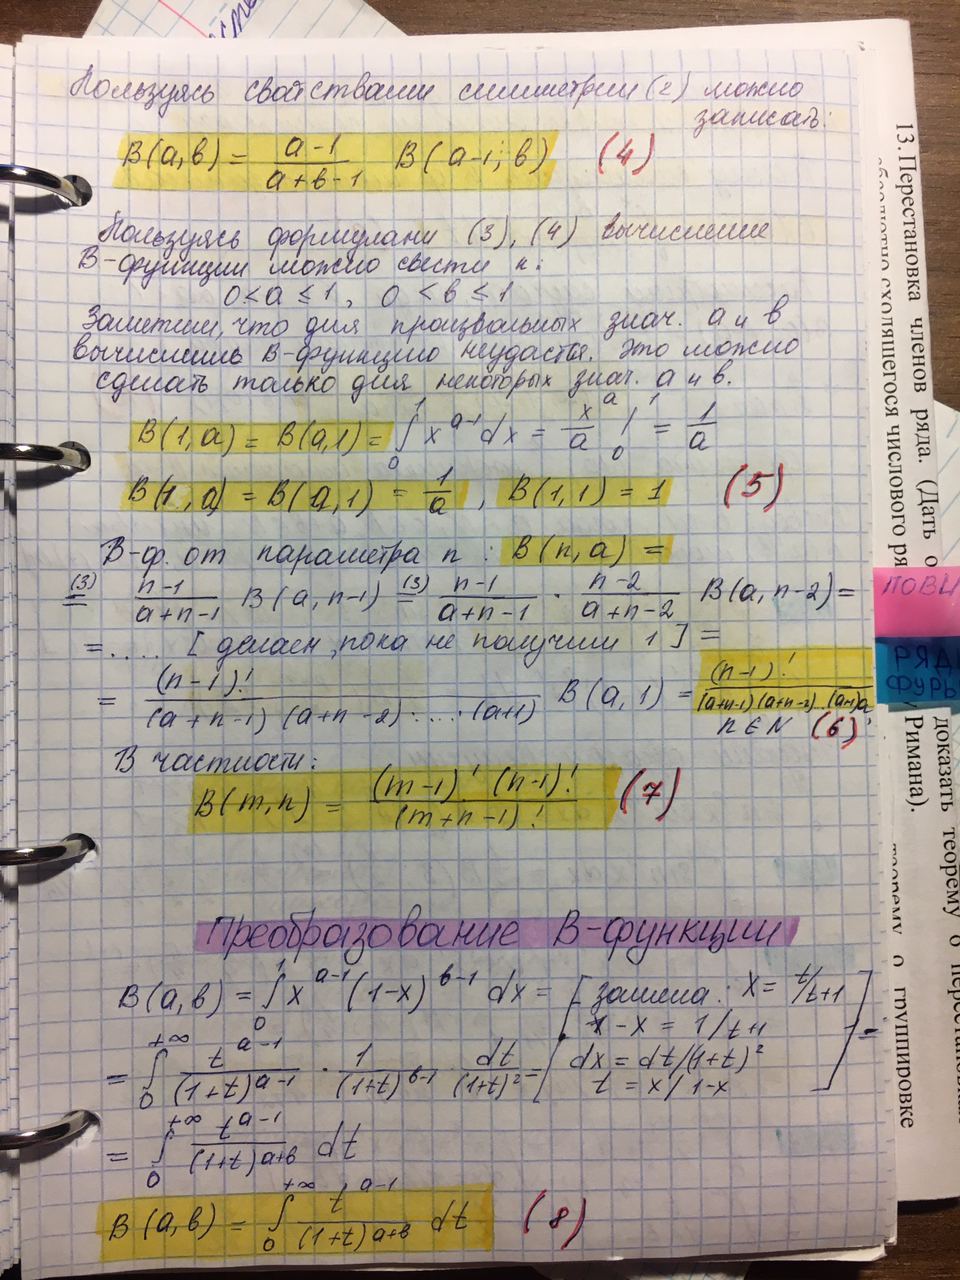 Пользуясь свойствами симметрии (2) можно
записать:
B(a,b) = \frac{a-1}{a+b-1} B(a-1; b) (4)
Пользуясь формулами (3), (4) вычисление
B-функции можно свести к:
0 < a ≤ 1, 0 < b ≤ 1
Заметим, что для произвольных знач. a и b
вычислить B-функцию неудастся. Это можно
сделать только для некоторых знач. a и b.
B(1,a) = B(a,1) = \int_0^1 x^{a-1} dx = \frac{x^a}{a} |_0^1 = \frac{1}{a}
B(1,a) = B(a,1) = \frac{1}{a}, B(1,1) = 1 (5)
B-ф. от параметра n: B(n,a) =
\overset{(3)}{=} \frac{n-1}{a+n-1} B(a, n-1) \overset{(3)}{=} \frac{n-1}{a+n-1} · \frac{n-2}{a+n-2} B(a, n-2) =
= .... [делаем, пока не получим 1] =
= \frac{(n-1)!}{(a+n-1)(a+n-2)·....·(a+1)} B(a,1) = \frac{(n-1)!}{(a+n-1)(a+n-2)...(a+1)a};
n ∈ N (6)
В частности:
B(m,n) = \frac{(m-1)! (n-1)!}{(m+n-1)!} (7)
Преобразование B-функции
B(a,b) = \int_0^1 x^{a-1} (1-x)^{b-1} dx = [замена: x = t/t+1
1-x = 1/t+1
= \int_0^{+∞} \frac{t^{a-1}}{(1+t)^{a-1}} · \frac{1}{(1+t)^{b-1}} \frac{dt}{(1+t)^2} = dx = dt/(1+t)^2
t = x/1-x ] =
= \int_0^{+∞} \frac{t^{a-1}}{(1+t)^{a+b}} dt
B(a,b) = \int_0^{+∞} \frac{t^{a-1}}{(1+t)^{a+b}} dt (8)
13. Перестановка членов ряда. (Дать о
сходящегося числового ря
доказать теорему о перестановках
Римана).
теорему о группировке
ПОВ
РЯД
ФУРЬ